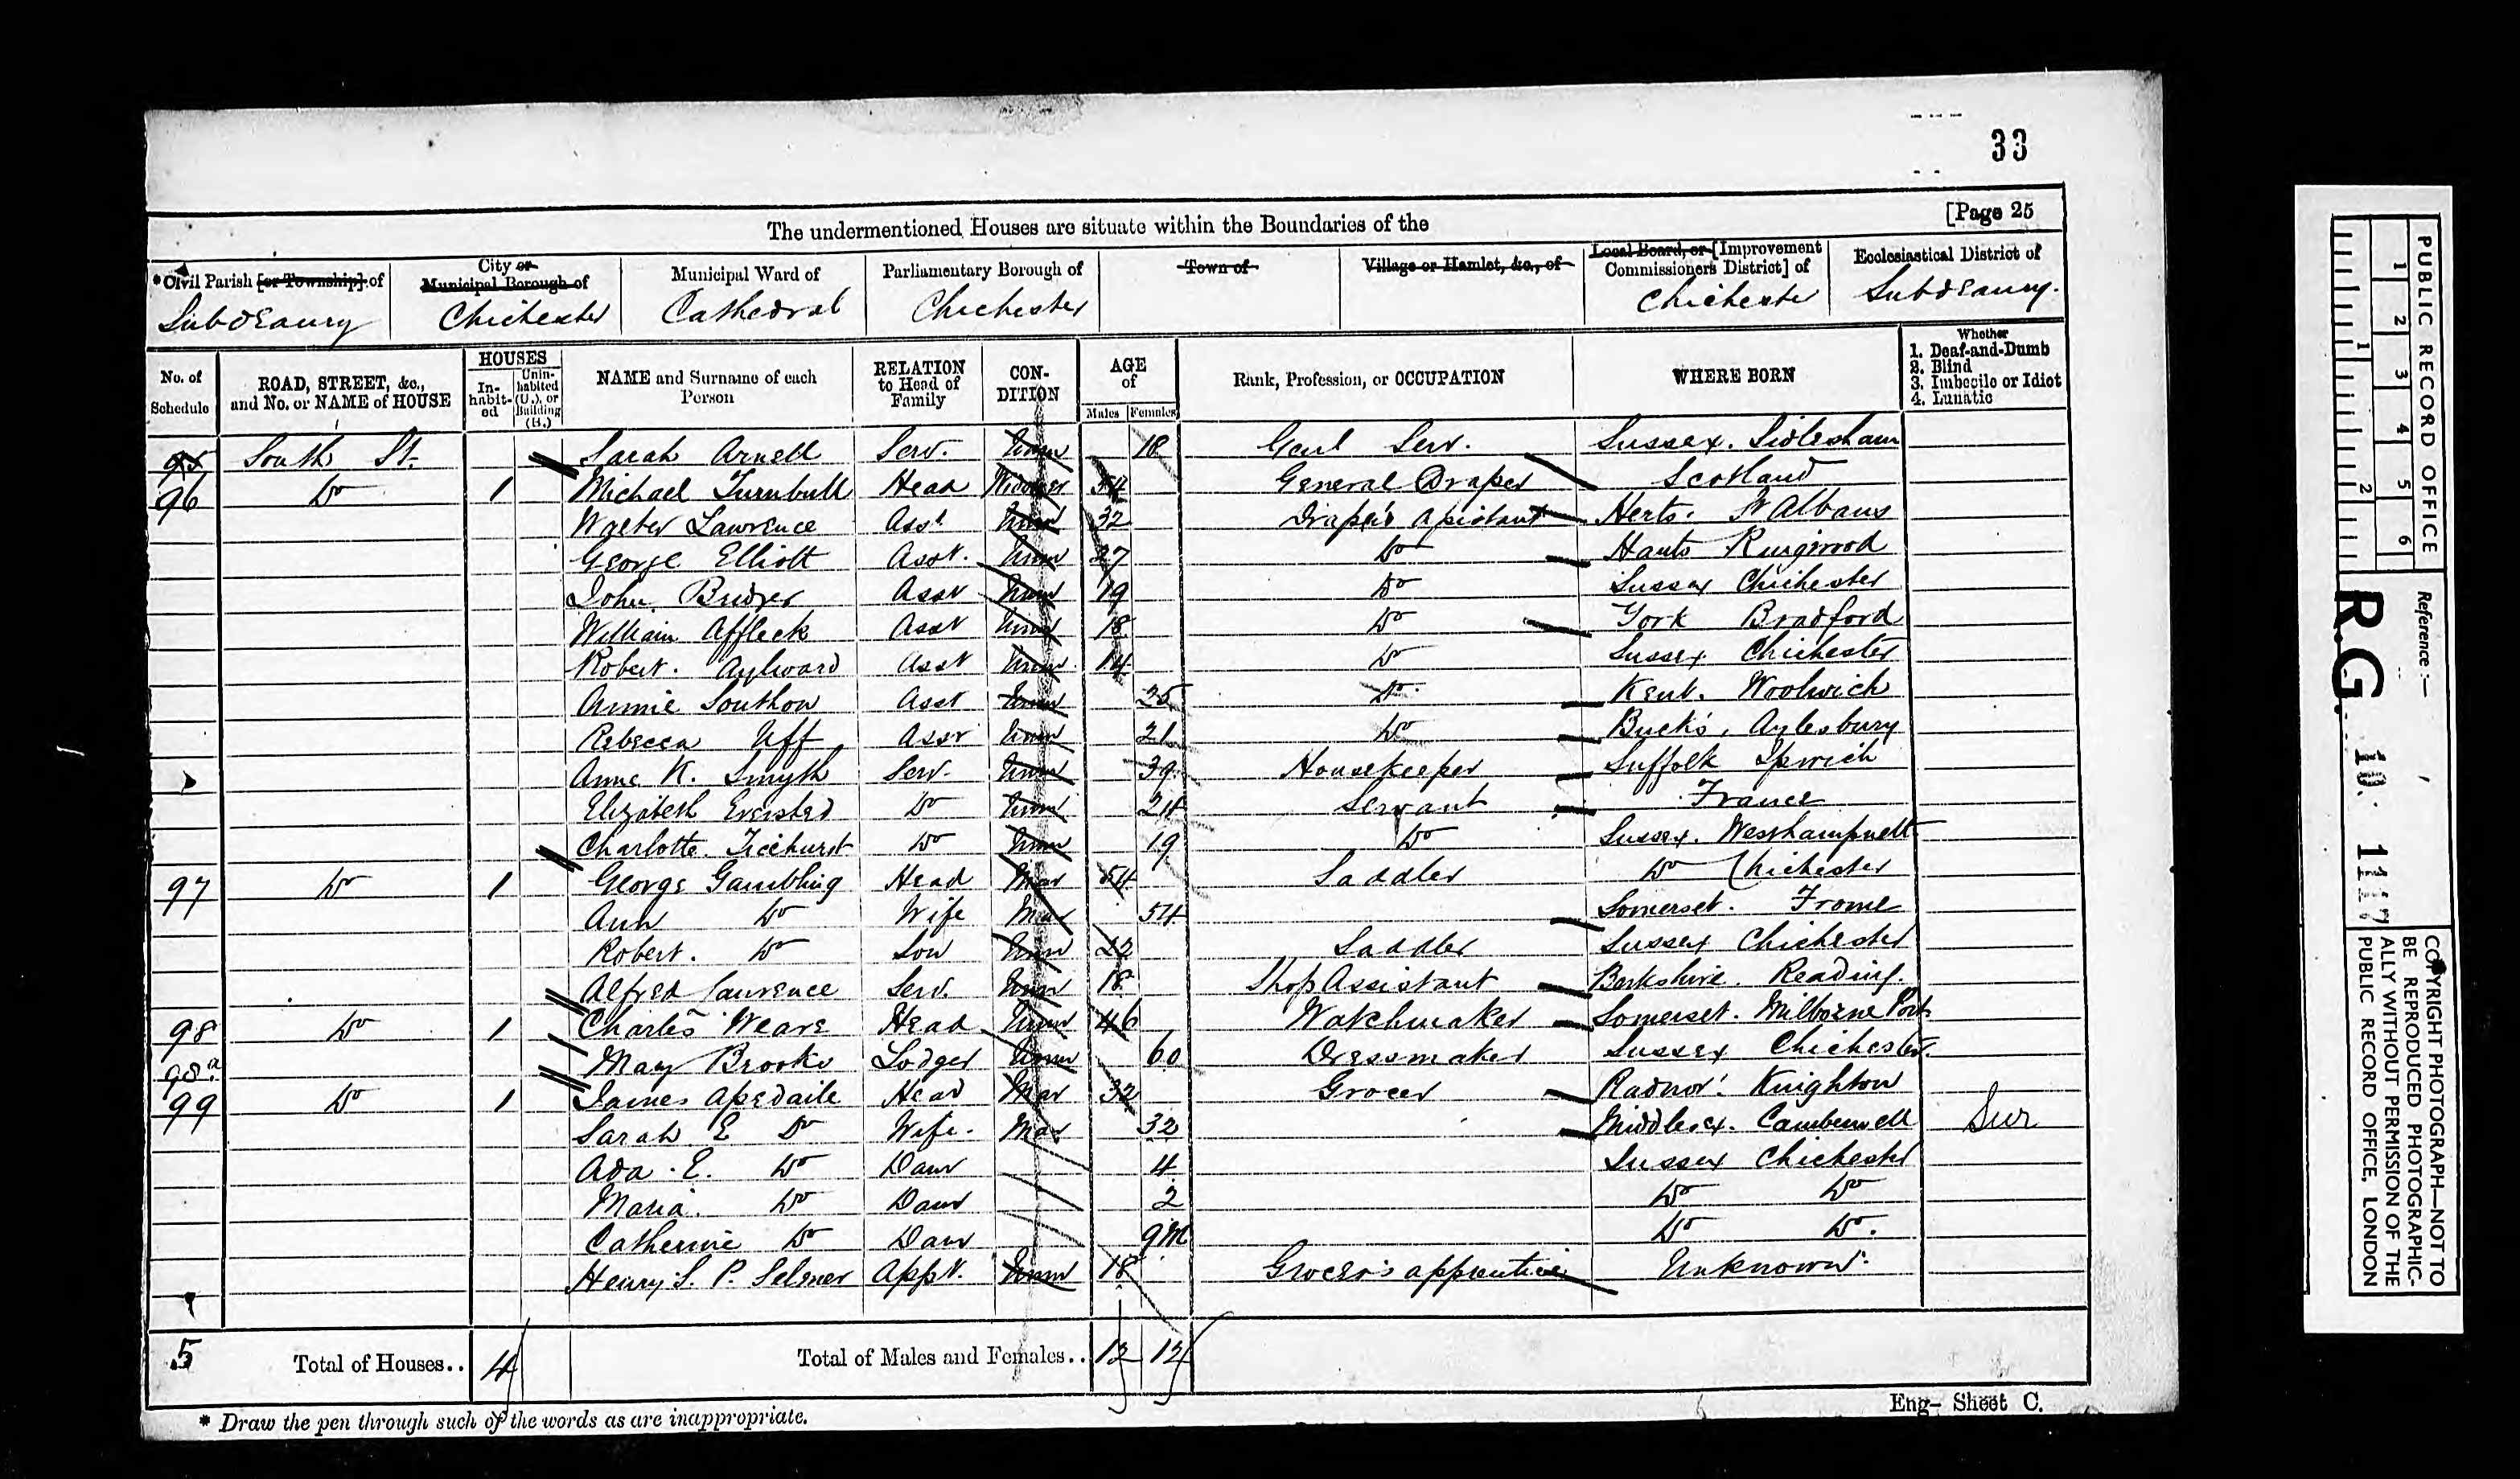 33
[Page 25
The undermentioned Houses are situate within the Boundaries of the
*Civil Parish [or Township] of
Subdeanry
City or Municipal Borough of
Chichester
Municipal Ward of
Cathedral
Parliamentary Borough of
Chichester
Town of
Village or Hamlet, &c., of
Local Board, or [Improvement Commissioners District] of
Chichester
Ecclesiastical District of
Subdeanry.
No. of Schedule
ROAD, STREET, &c., and No. or NAME of HOUSE
HOUSES
In-habit-ed
Unin-habited (U.), or Building (B.)
NAME and Surname of each Person
RELATION to Head of Family
CON-DITION
AGE of
Males Females
Rank, Profession, or OCCUPATION
WHERE BORN
Whether
1. Deaf-and-Dumb
2. Blind
3. Imbecile or Idiot
4. Lunatic
95 South St. Sarah Arnell Serv. Unm 18 Genl Serv. Sussex. Sidlesham
96 Do 1 Michael Turnbull Head Widower 54 General Draper Scotland
Walter Lawrence Asst. Unm 32 Draper's Assistant Herts. St Albans
George Elliott Asst. Unm 27 Do Hants Ringwood
John Bridger Asst Unm 19 Do Sussex Chichester
William Affleck Asst Unm 18 Do York Bradford
Robert. Aylward Asst Unm 14 Do Sussex Chichester
Annie Southon Asst Unm 25 Do. Kent. Woolwich
Rebecca Uff Asst Unm 21 Do Bucks, Aylesbury
Anne K. Smyth Serv. Unm 39 Housekeeper Suffolk Ipswich
Elizabeth Evershed Do Unm 24 Servant France
Charlotte Ticehurst Do Unm 19 Do Sussex. Westhampnett
97 Do 1 George Gambling Head Mar 54 Saddler Do Chichester
Ann Do Wife Mar 54 Somerset. Frome
Robert. Do Son Unm 22 Saddler Sussex Chichester
Alfred Laurence Serv. Unm 18 Shop Assistant Berkshire. Reading.
98 Do 1 Charles Weare Head Unm 46 Watchmaker Somerset. Milborne Port
98a Mary Brooke Lodger Unm 60 Dressmaker Sussex Chichester.
99 Do 1 James Apedaile Head Mar 32 Grocer Radnor. Knighton
Sarah E Do Wife. Mar 32 Middlesex. Camberwell Sur
Ada E. Do Daur 4 Sussex Chichester
Maria. Do Daur 2 Do Do
Catherine Do Daur 9m Do Do.
Henry S. P. Appt. Unm 18 Grocer's apprentice Unknown.
5 Total of Houses.. 4 Total of Males and Females.. 12 12
* Draw the pen through such of the words as are inappropriate.
Eng- Sheet C.
PUBLIC RECORD OFFICE
1 2 3 4 5 6
1 2
Reference:-
R.G. 10
COPYRIGHT PHOTOGRAPH—NOT TO
BE REPRODUCED PHOTOGRAPHIC-
ALLY WITHOUT PERMISSION OF THE
PUBLIC RECORD OFFICE, LONDON